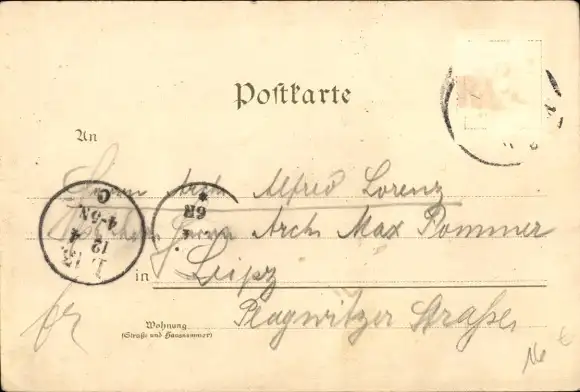 Postkarte
An
Herrn Arch. Alfred Lorenz
Herrn Arch. Max Pommer
in Leipz
Plagwitzer Straße
Wohnung
(Straße und Hausnummer)
12
4
4-5N
C
*
6R